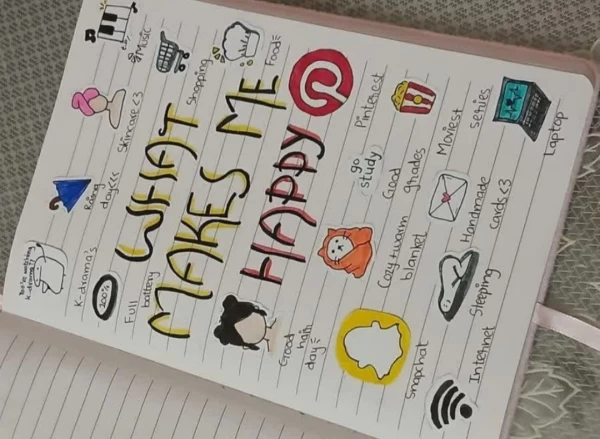 K-drama's
Rainy
dayss<
Skincare <3
Music
100%
Full
battery
Shopping
Food
WHAT
MAKES ME
HAPPY
Good
hair
day
Cozy+warm
blanket
go
study
Good
grades
Pinterest
Snapchat
Sleeping
Handmade
cards<3
Movies+
series
Internet
Laptop